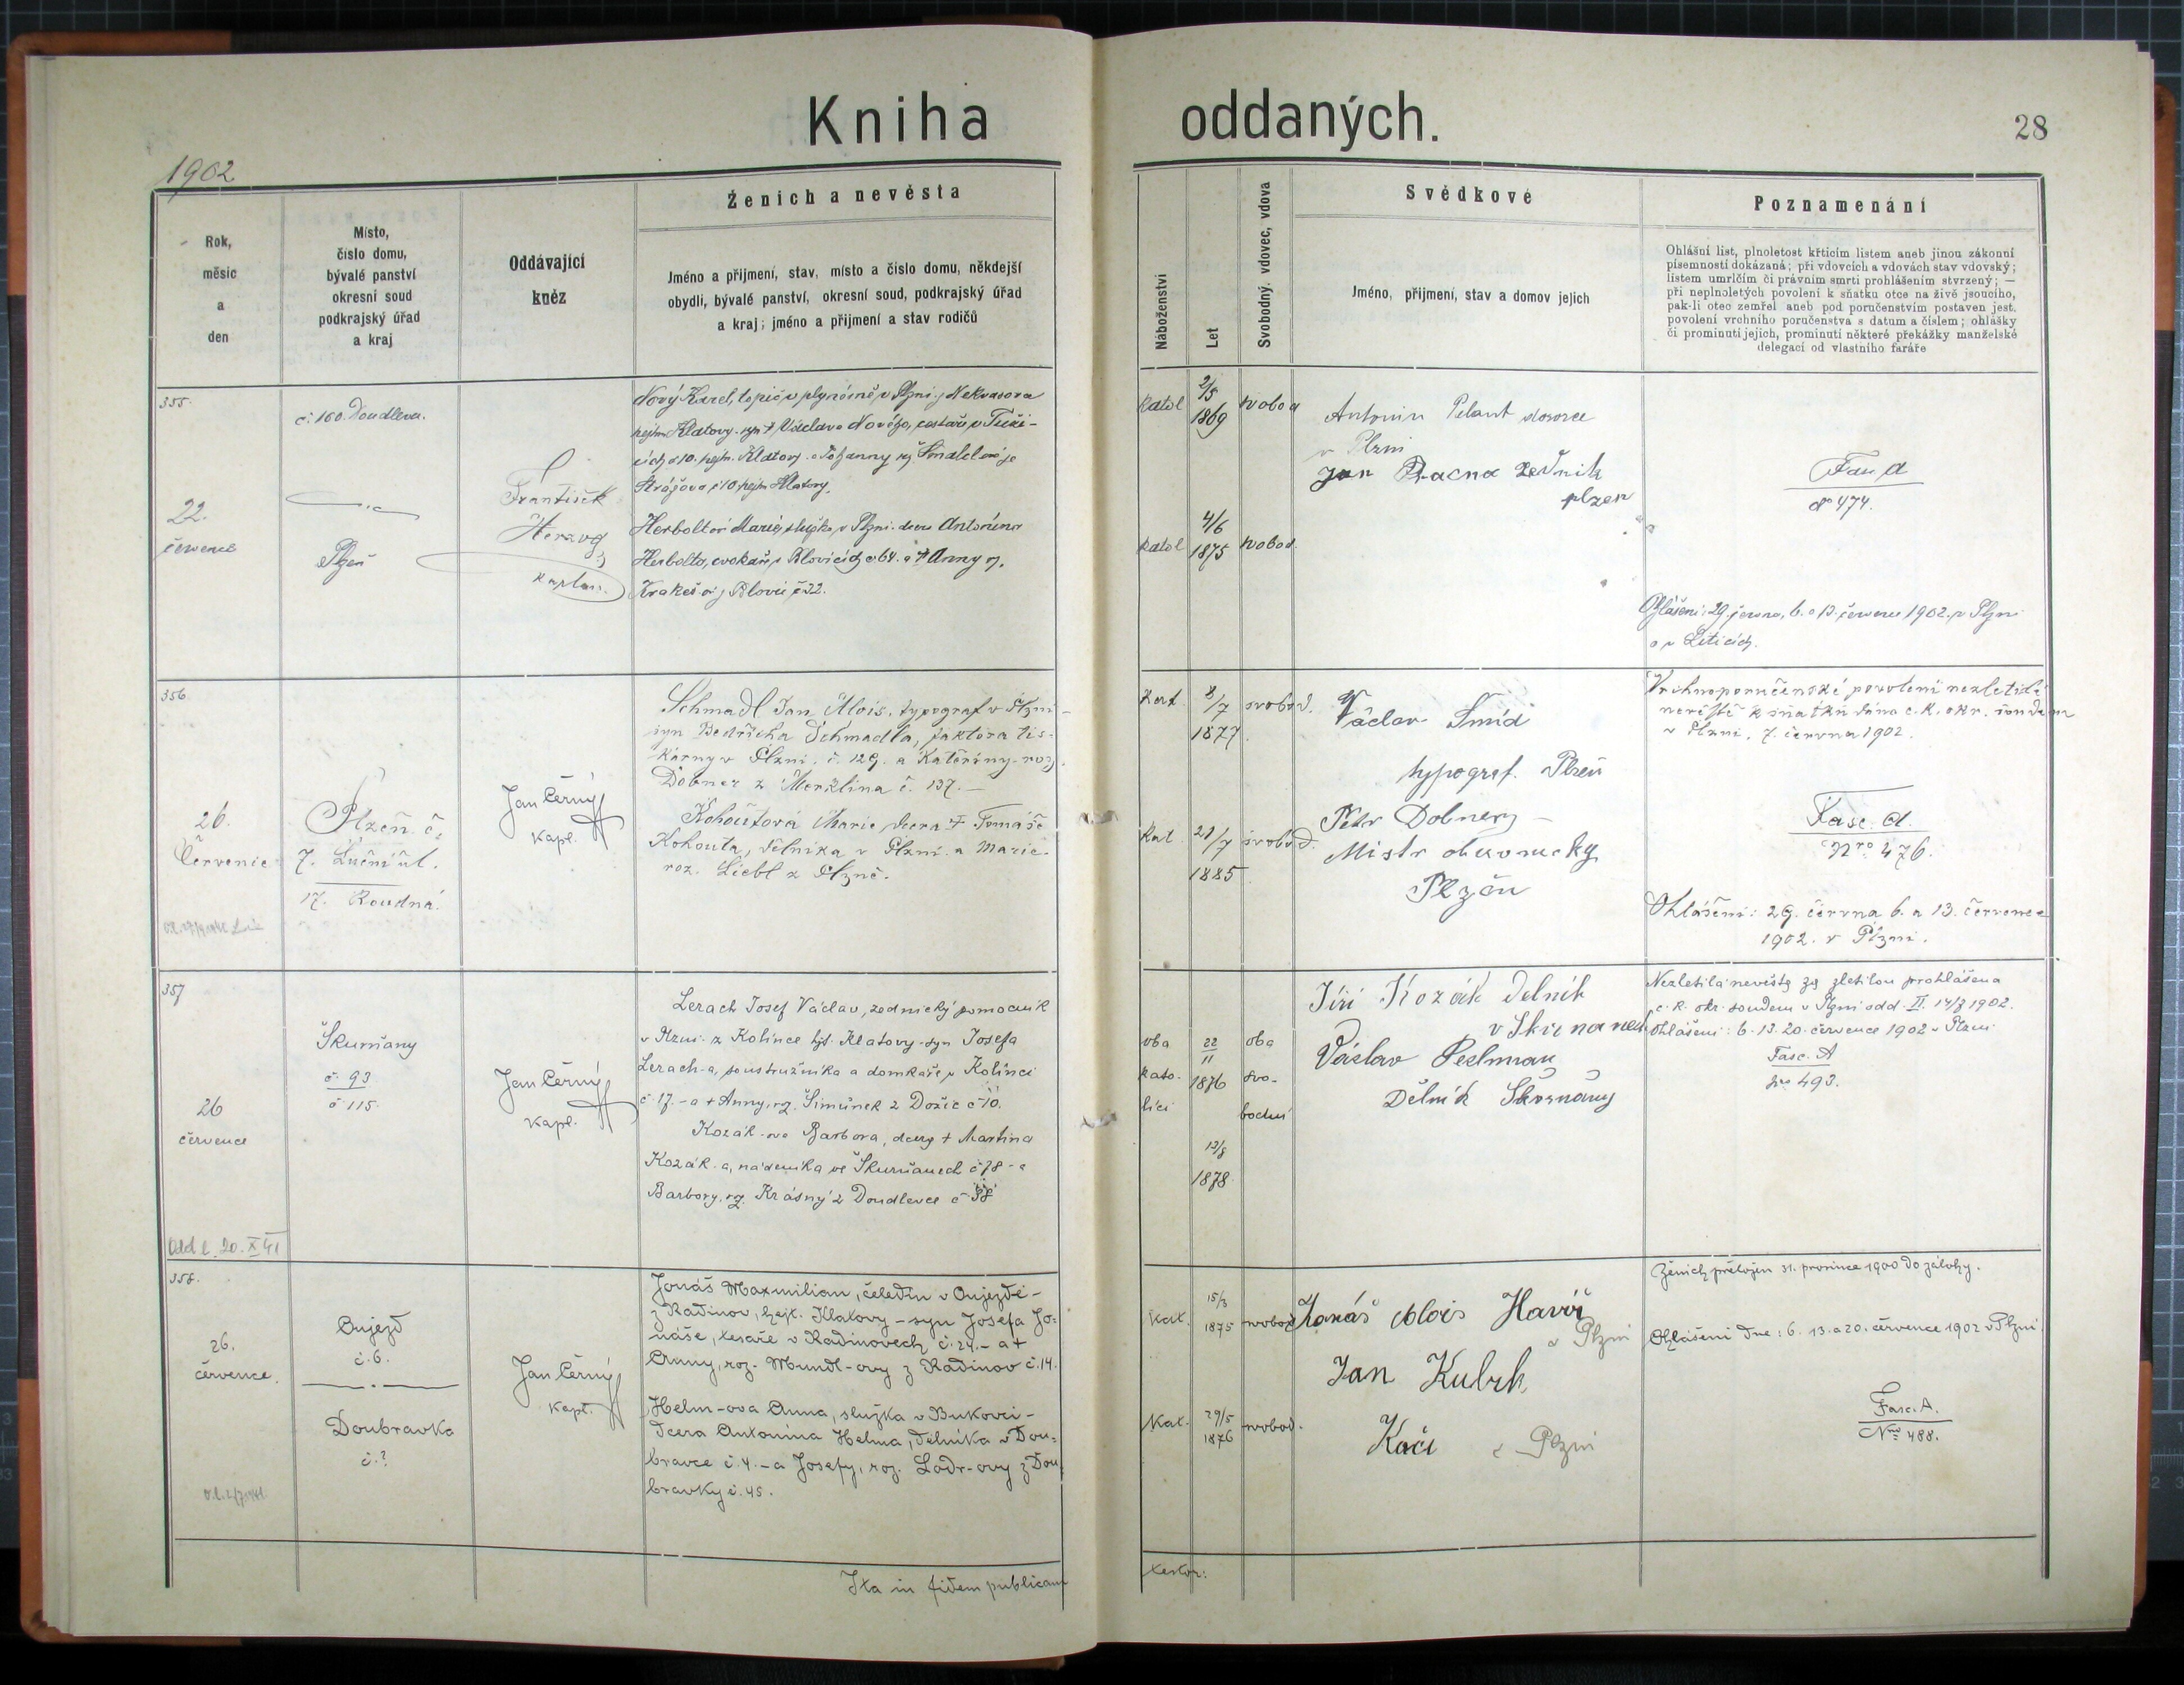 Kniha oddaných.
28
1902
Rok,
měsíc
a
den
Místo,
číslo domu,
bývalé panství
okresní soud
podkrajský úřad
a kraj
Oddávající
kněz
Ženich a nevěsta
Jméno a přijmení, stav, místo a číslo domu, někdejší
obydlí, bývalé panství, okresní soud, podkrajský úřad
a kraj; jméno a přijmení a stav rodičů
Náboženství
Let
Svobodný, vdovec, vdova
Svědkové
Jméno, přijmení, stav a domov jejich
Poznamenání
Ohlášní list, plnoletost křticím listem aneb jinou zákonní
písemností dokázaná; při vdovcích a vdovách stav vdovský;
listem umrlčím či právním smrti prohlášením stvrzený; —
při neplnoletých povolení k sňatku otce na živě jsoucího,
pak-li otec zemřel aneb pod poručenstvím postaven jest,
povolení vrchního poručenstva s datum a číslem; ohlášky
či prominutí jejich, prominutí některé překážky manželské
delegací od vlastního faráře
355.
22.
července
č. 160. Doudlevce.
Plzeň
František
Herzog
kaplan.
Nový Karel, topič v plynárně v Plzni z Nekvasova
hejtm. Klatovy. syn † Václava Nového,
č 10. hejtm. Klatovy a Johanny roz.
Strážova č 10 hejtm Klatovy.
Herboltová Marie, služka v Plzni. dcera Antonína
Herbolta, cvokaře v Blovicích č 64. a † Anny r.
z Blovic č 22.
katol
2/5
1869
svobod
katol
4/6
1875
svobod.
Antonín Pelant dozorce
v Plzni
Jan Pracna zedník
plzen
Fasc A
No 474.
Ohlášení: 29. června, 6. a 13. července 1902. v Plzni
a v Liticích.
356
26.
Července
Plzeň č.
7. Luční ul.
17. Roudná.
Jan Černý
kapl.
Schmadl Jan Alois, typograf v Plzni -
syn Bedřicha Schmadla, faktora tis-
kárny v Plzni. č. 129. a Kateřiny roz.
Dobner z Merklína č. 137. —
Kohoutová Marie dcera † Tomáše
Kohouta, dělníka v Plzni a Marie
roz. Liebl z Plzně.
Kat.
8/7
1877.
svobod.
Kat.
21/7
1885
svobod.
Václav Šmíd
typograf. Plzeň
Petr Dobner
Mistr obuvnický
Plzeň
Vrchnoporučenské povolení nezletilé
nevěstě k sňatku dáno c. k. okr. soudem
v Plzni. 7. června 1902.
Fasc. A.
Nro 476.
Ohlášení: 29. června 6. a 13. července
1902. v Plzni.
357
26
července
Oddl. 20. X 41
Škurňany
č. 93
č 115.
Jan Černý
kapl.
Lerach Josef Václav, zednický pomocník
v Plzni z Kolince hjt. Klatovy - syn Josefa
Lerach-a, soustružníka a domkaře v Kolinci
č. 17. - a † Anny, rz. Šimůnek z Dožic č 10.
Kozák-ova Barbora, dcera † Martina
Kozák-a, nádeníka ve Škurňanech č 78 - a
Barbory, rz. Krásný z Doudlevce č 38
oba
kato-
líci
22
11
1876
13/8
1878
oba
svo-
bodni
Jiří Kozák Delník
v Skvrnanech
Václav Peslman
Dělník Skvrnany
Nezletilá nevěsta za zletilou prohlášena
c. k. okr. soudem v Plzni odd. II. 14/7 1902.
Ohlášeni: 6. 13. 20. července 1902 v Plzni
Fasc. A
Nro 493.
358.
26.
července.
Oujezd
č. 6.
Doubravka
č. ?
Jan Černý
kapl.
Jonáš Maxmilian, čeledín v Oujezdě -
z Radinov, hejt. Klatovy - syn Josefa Jo-
náše, tesaře v Radinovech č. 24. - a †
Anny, roz. Mundl-ovy z Radinov č. 14.
Helm-ova Anna, služka v Bukovci -
dcera Antonína Helma, dělníka v Dou-
bravce č. 4. - a Josefy, roz. Lodr-ovy z Dou
bravky č. 45.
Kat.
15/3
1875
svobod
Kat.
29/5
1876
svobod.
Jonáš Alois Havíř
v Plzni
Jan
Kočí z Plzni
Ženich přeložen 31. prosince 1900 do zálohy.
Ohlášeni dne: 6. 13. a 20. července 1902 v Plzni.
Fasc. A.
Nro 488.
Ita in fidem publicam
testor: